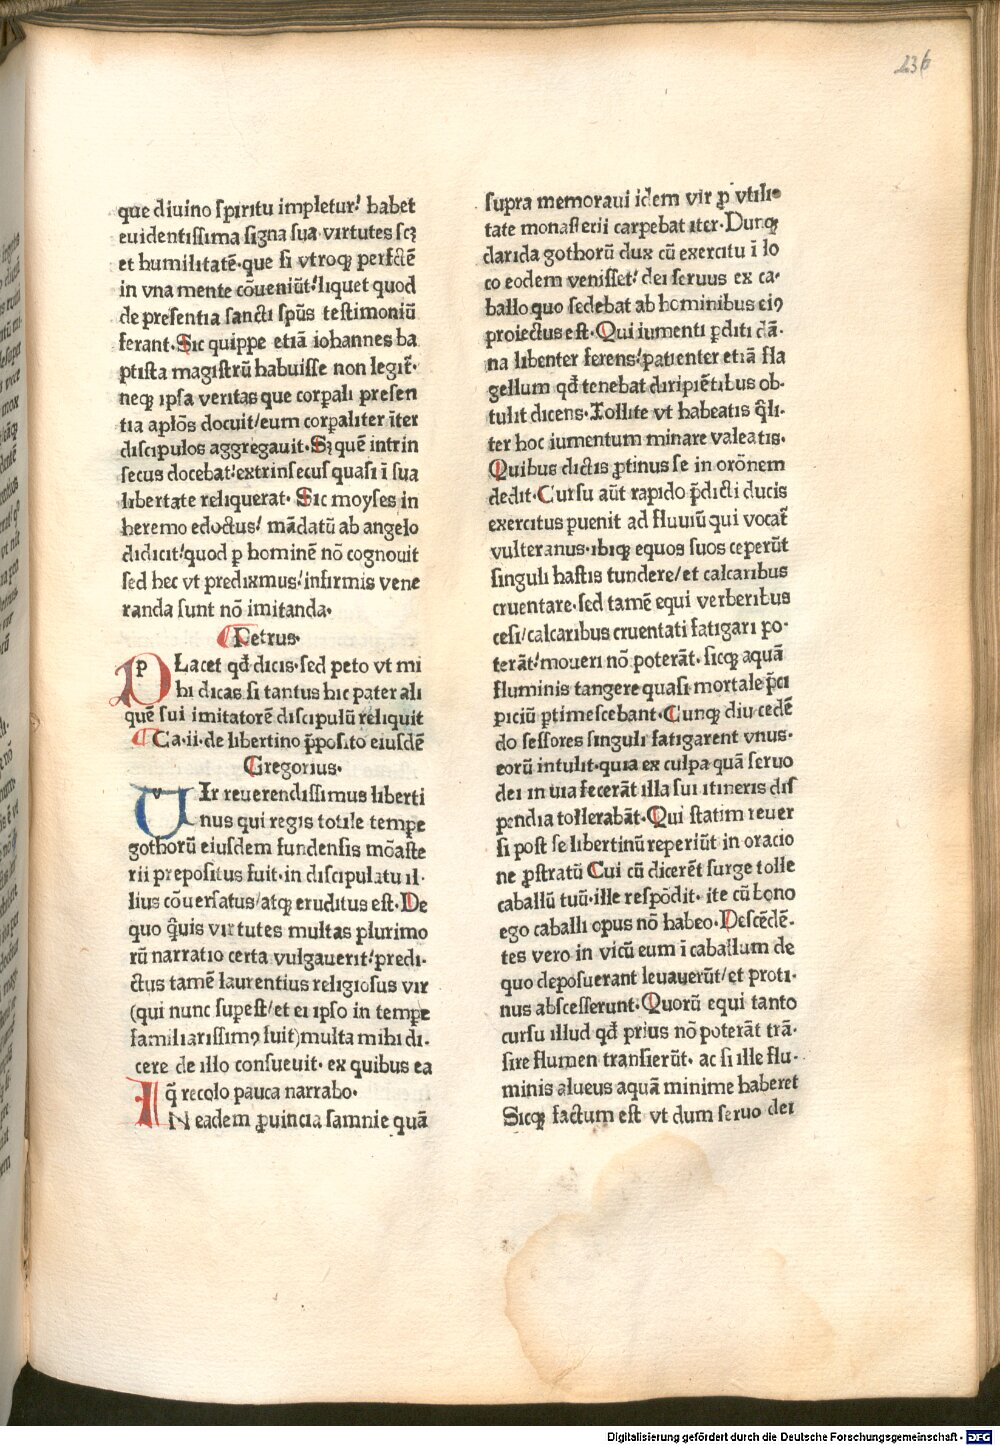 236
que diuino spiritu impletur! habet
euidentissima signa sua·virtutes scꝫ
et humilitatē·que si vtroqꝫ perfctē
in vna mente cōueniūt!liquet quod
de presentia sancti spūs testimoniū
ferant·Sic quippe etiā iohannes ba
ptista magistrū habuisse non legit̄·
neqꝫ ipsa veritas que corꝑali presen
tia aplōs docuit/eum corꝑaliter īter
discipulos aggregauit·Sꝫ quē intrin
secus docebat!extrinsecus quasi ī sua
libertate reliquerat· Sic moyses in
heremo edoctus! mādatū ab angelo
didicit!quod ꝑ hominē nō cognouit
sed hec vt prediximus!infirmis vene
randa sunt nō imitanda·
Petrus·
PLacet qd̄ dicis·sed peto vt mi
hi dicas si tantus hic pater ali
quē sui imitatorē discipulū reliquit
Ca·ii·de libertino p̄posito eiusdē
Gregorius·
VIr reuerendissimus liberti
nus qui regis totile tempe
gothorū eiusdem fundensis mōaste
rii prepositus fuit·in discipulatu il·
lius cōuersatus/atqꝫ eruditus est·De
quo q̄uis virtutes multas plurimo
rū narratio certa vulgauerit!predi·
ctus tamē laurentius religiosus vir
(qui nunc supest/et ei ipso in tempe
familiarissimꝯ fuit)multa mihi di·
cere de illo consueuit· ex quibus ea
q̄ recolo pauca narrabo·
IN eadem ꝓuincia samnie quā
supra memoraui idem vir ꝓ vtili·
tate monasterii carpebat iter·Dunqꝫ
darida gothorū dux cū exercitu ī lo
co eodem venisset! dei seruus ex ca·
ballo quo sedebat ab hominibus eiꝯ
proiectus est·Qui iumenti ꝑditi dā·
na libenter ferens!patienter etiā fla
gellum qd̄ tenebat diripiētibus ob·
tulit dicens·Tollite vt habeatis q̄li·
ter hoc iumentum minare valeatis·
Quibus dictis ꝓtinus se in orōnem
dedit·Cursu aūt rapido p̄dicti ducis
exercitus puenit ad fluuiū qui vocat̄
vulteranus·ibiqꝫ equos suos ceperūt
singuli hastis tundere/et calcaribus
cruentare·sed tamē equi verberibus
cesi/calcaribus cruentati fatigari po·
terāt!moueri nō poterāt·sicqꝫ aquā
fluminis tangere quasi mortale p̄ci
piciū ꝑtimescebant·Cunqꝫ diu cedē
do sessores singuli fatigarent vnus·
eorū intulit·quia ex culpa quā seruo
dei in uia fecerāt illa sui itineris dis
pendia tollerabāt·Qui statim reuer
si post se libertinū reperiūt in oracio
ne ꝓstratū Cui cū dicerēt surge tolle
caballū tuū·ille respōdit·ite cū bono
ego caballi opus nō habeo·Descēdē·
tes vero in vicū eum ī caballum de
quo deposuerant leuauerūt/et proti·
nus abscesserunt·Quorū equi tanto
cursu illud qd̄ prius nō poterāt trā·
sire flumen transierūt· ac si ille flu·
minis alueus aquā minime haberet
Sicqꝫ factum est vt dum seruo dei
Digitalisierung gefördert durch die Deutsche Forschungsgemeinschaft - DFG